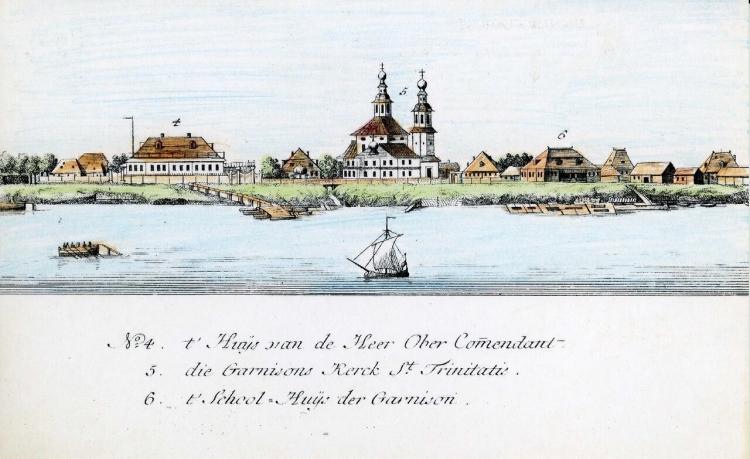 4
5
6
No. 4. t' Huÿs van de Heer Ober Com̄endant
5. die Garnisons Kerck St. Trinitatis.
6. t' School=Huÿs der Garnison.